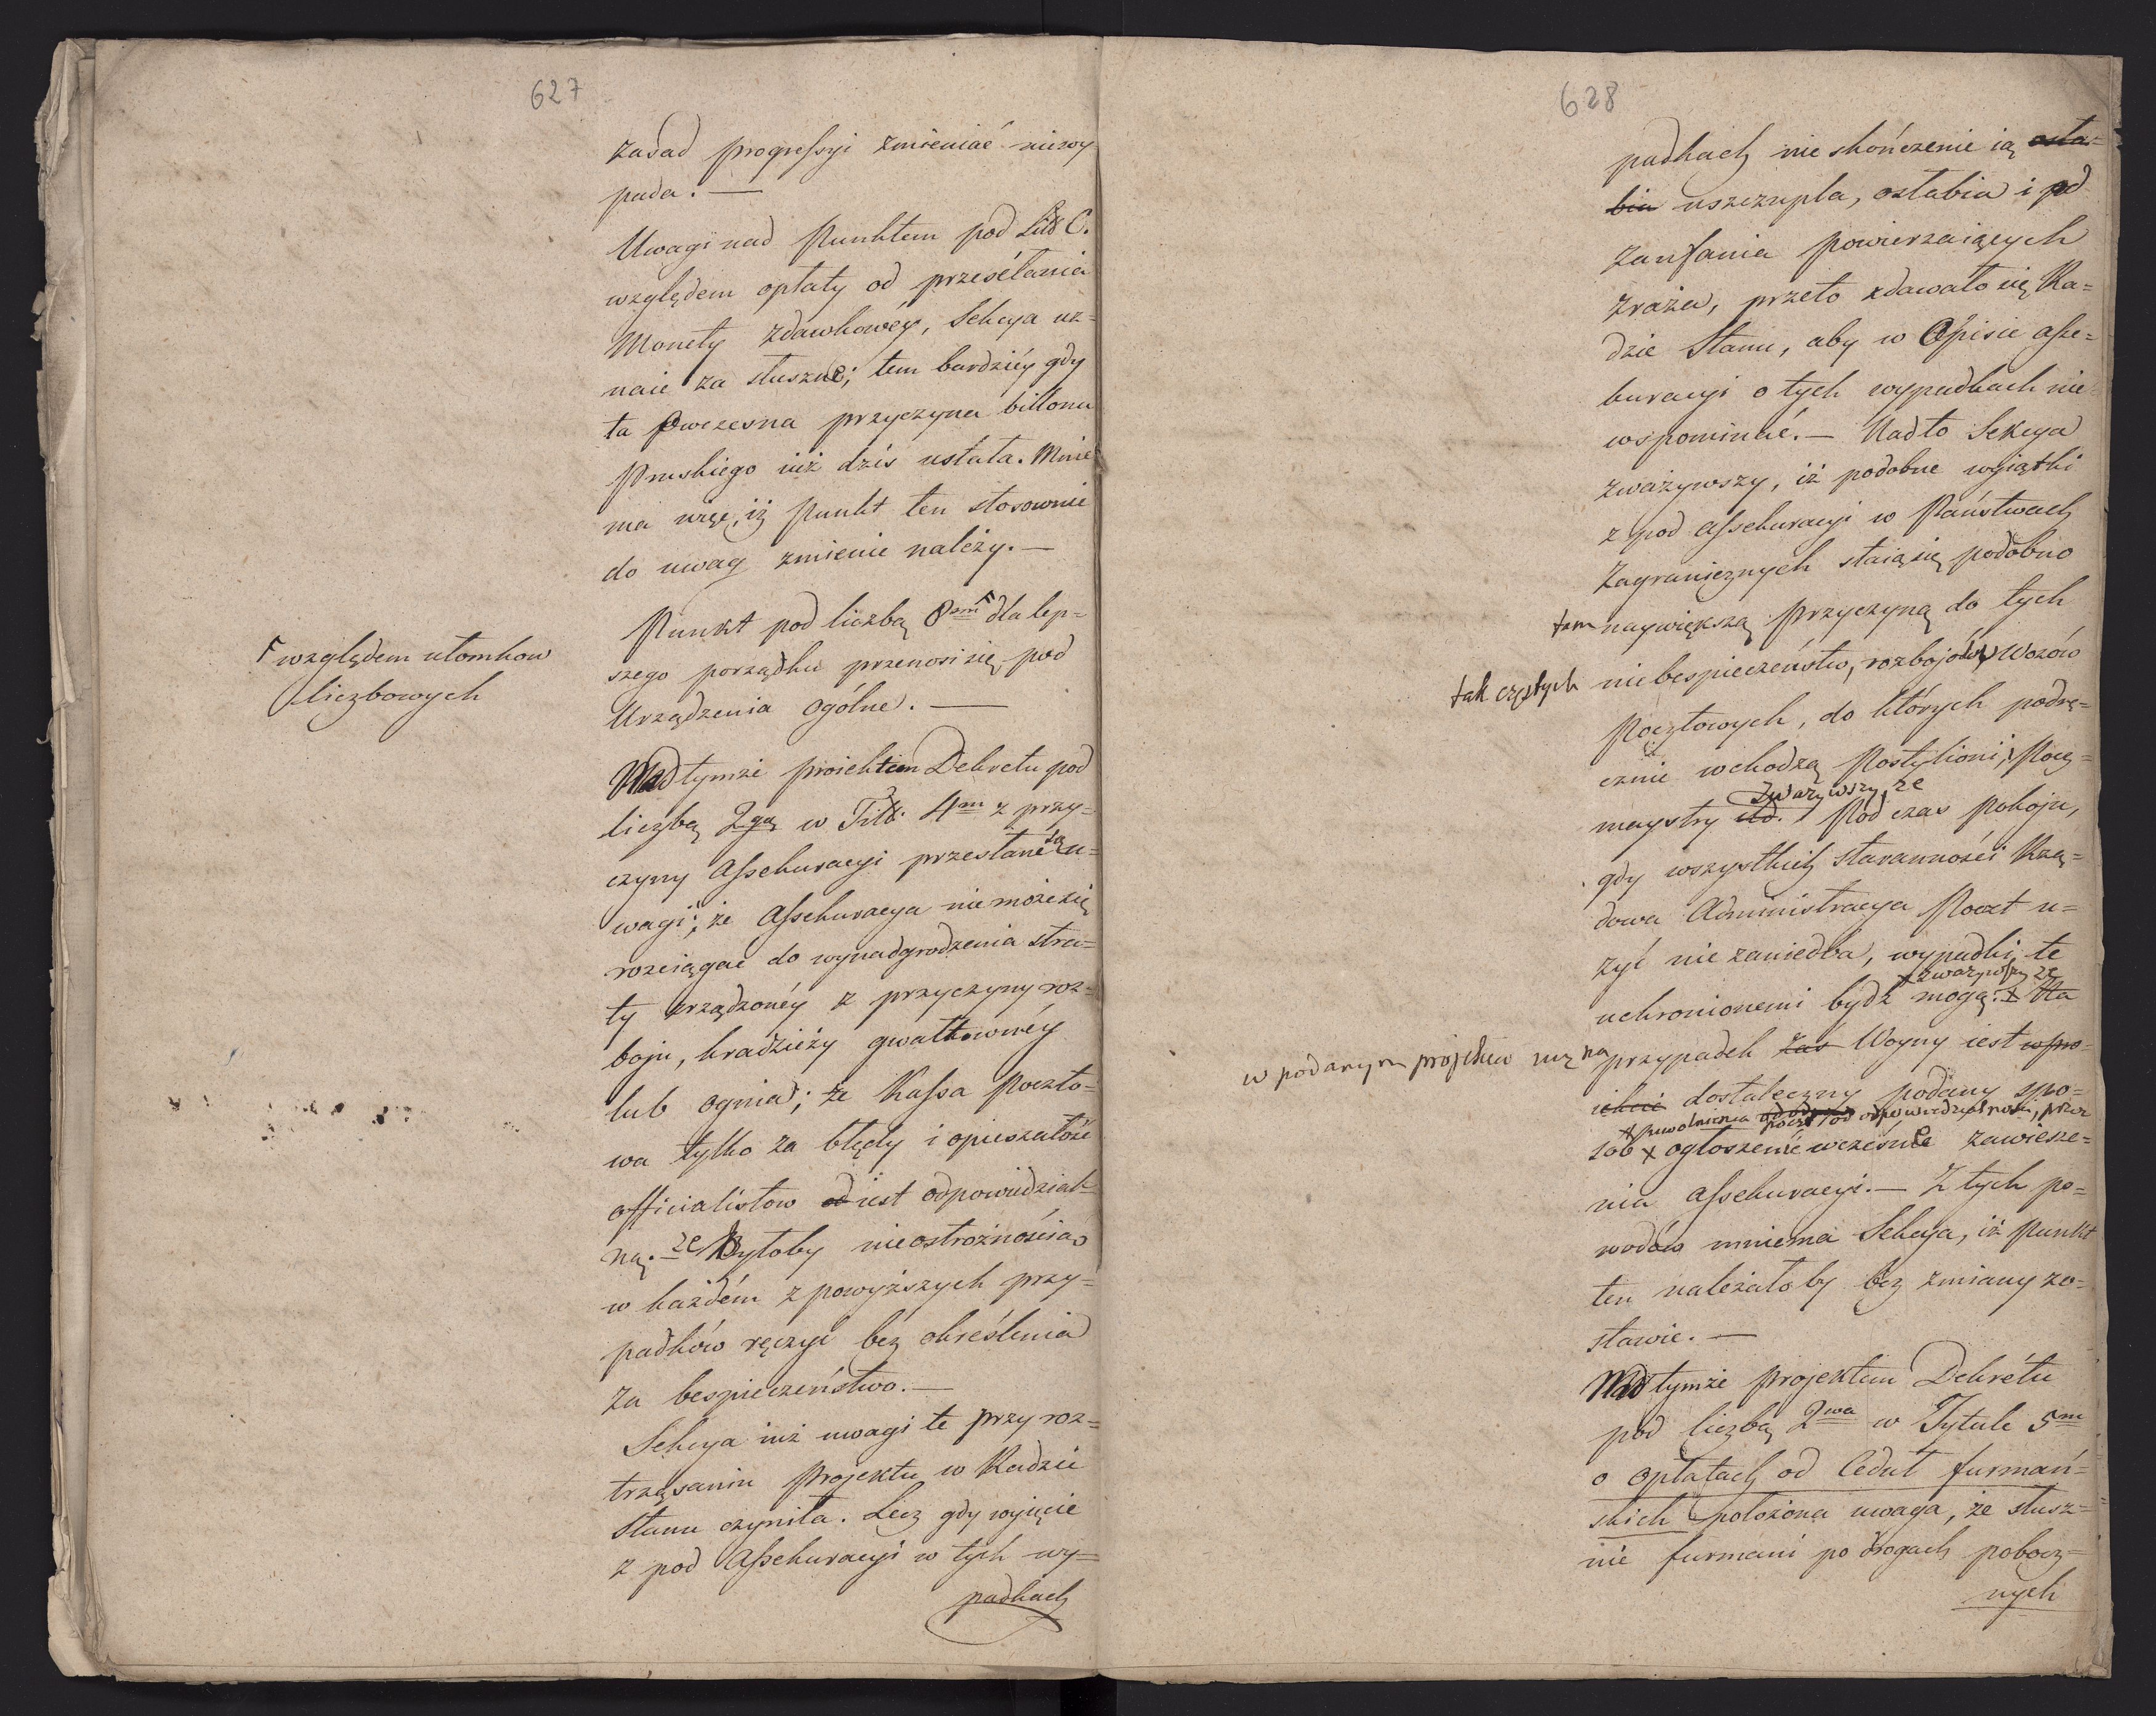 627
zasad progressyi zmieniać niewy
pada. —
Uwagi nad Punktem pod Litt C.
względem opłaty od przesełania
Monety zdawkowéy, Sekcya uz=
naie za słuszne; tem bardziéy gdy
ta owczesna przyczyna billonu
Pruskiego iuż dziś ustała. Mnie
ma więc, iż Punkt ten stosownie
do uwag zmienić należy. —
Punkt pod liczbą 8mF dla lep=
szego porządku przenosi się pod
Urządzenia ogólne. —
F względem ułomkow
liczbowych
Nad tymże proiektem Dekretu pod
liczbą 2gą w Titt. 4m z przy=
czyny Assekuracyi przesłane są u=
wagi; że Assekuracya nie może się
rozciągać do wynadgrodzenia stra=
ty zrządzonéy z przyczyny roz=
boju, kradzieży gwałtownéy
lub ognia; że Kassa Poczto=
wa tylko za błędy i opieszałość
officialistow iest odpowiedzial=
ną. że Byłoby nieostrożnością
w każdém z powyższych przy=
padków ręczyć bez określenia
za bespieczeństwo. —
Sekcya iuż uwagi te przy roz=
trząsaniu Projektu w Radzie
Stanu czyniła. Lecz gdy wyięcie
z pod Assekuracyi w tych wy=
padkach
628
padkach nie skończenie ią osła=
bia uszczupla, osłabia i od
zaufania powierzaiących
zraża, przeto zdawało się Ra=
dzie Stanu, aby w Opisie asse=
kuracyi o tych wypadkach nie
wspominać. — Nadto Sekcya
zważywszy, iż podobne wyiątki
z pod assekuracyi w Państwach
Zagranicznych staią się podobno
tam naywiększą przyczyną do tych
tak częstych niebespieczeństw, rozbojów Wozów
Pocztowych, do których podrę=
cznie wchodzą Postylioni, Pocz=
zważywszy, że
maystry etd. Pod czas pokoju,
gdy wszystkich staranności Rzą=
dowa Administracya Poczt u=
żyć nie zaniedba, wypadki te
x zważywszy że
uchronionemi bydź mogą: x Na
w podanym projekcie iuż na przypadek zaś Woyny iest w pro=
iekcie dostateczny podany spo=
x uwolnienia poczt od odpowiedzialności, przez
sób x ogłoszenie wcześne zawiesze=
nia assekuracyi. — Z tych po=
wodów mniema Sekcya, iż punkt
ten należałoby bez zmiany zo=
stawić. —
Nad tymże projektem Dekrétu
pod liczbą 2wa w Tytule 5m
o opłatach od Cedut furmań=
skich położona uwaga, że słusz=
nie furmani po drogach pobocz=
nych